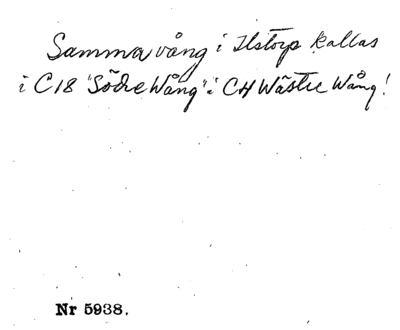 Samma vång i Ilstorp kallas
i C18 "Södre Wång" i CH Wästre Wång!
Nr 5938.